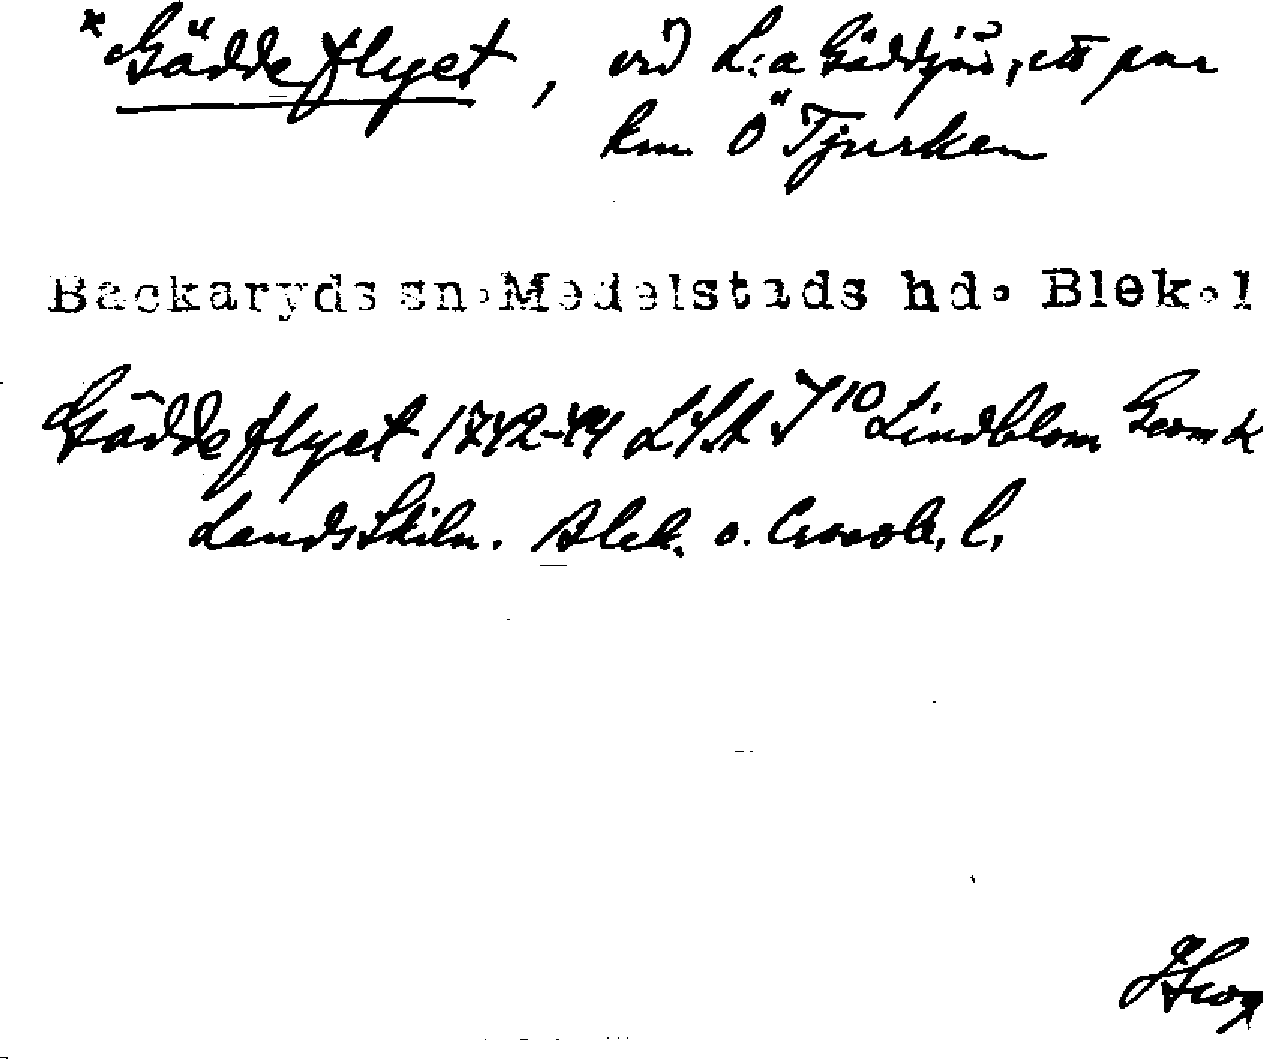 *Gäddeflyet, vid L:a Gäddsjön, ett par
km Ö Tjurken
Backaryds sn. Medelstads hd. Blek. l
Gäddeflyet 1742-44 LSA I 10 Lindblom Geom K
Landsskiln. Blek. o. Cronob. l.